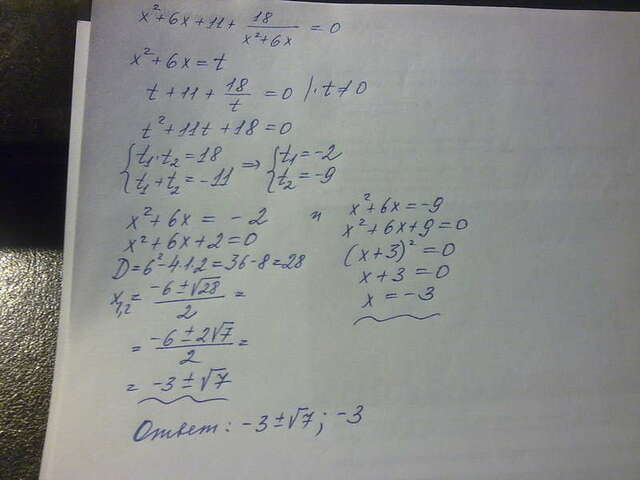 x²+6x+11+ 18/(x²+6x) = 0
x²+6x=t
t+11+ 18/t =0 |·t≠0
t²+11t+18=0
{t₁·t₂=18 => {t₁=-2
{t₁+t₂=-11 {t₂=-9
x²+6x = -2 и
x²+6x+2=0
D=6²-4·1·2=36-8=28
x₁,₂= (-6±√28)/2 =
= (-6±2√7)/2 =
= -3±√7
x²+6x=-9
x²+6x+9=0
(x+3)²=0
x+3=0
x=-3
Ответ: -3±√7; -3